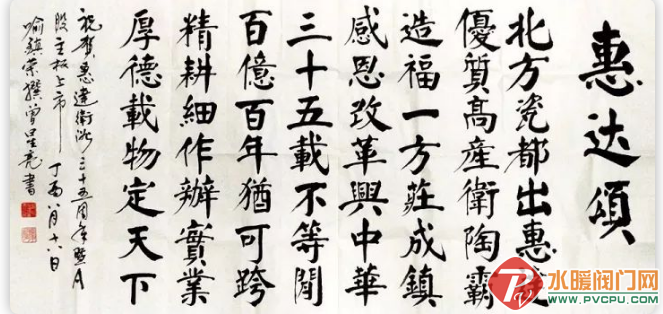 惠达頌
北方瓷都出惠
優質高産衛陶霸
造福一方莊成鎮
感恩改革興中華
三十五載不等閒
百億百年猶可跨
精耕細作辦實業
厚德載物定天下
祝賀惠達衛浴三十五周年暨A
股主板上市 丁酉八月十八日
喻鎮榮撰曾星亮書
水暖阀门网
WWW.PVCPU.COM